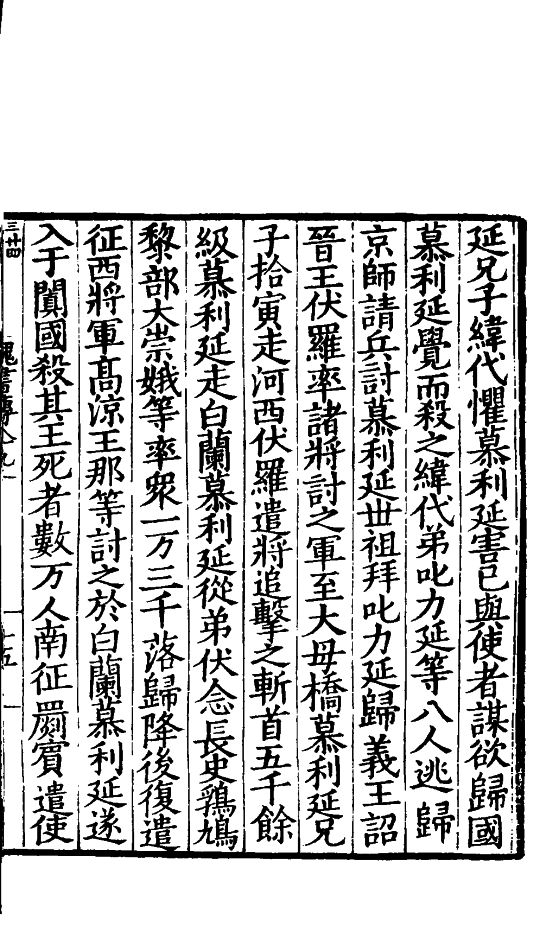 延兄子緯代懼慕利延害己與使者謀欲歸國
慕利延覺而殺之緯代弟叱力延等八人逃歸
京師請兵討慕利延世祖拜叱力延歸義王詔
晉王伏羅率諸將討之軍至大母橋慕利延兄
子拾寅走河西伏羅遣將追擊之斬首五千餘
級慕利延走白蘭慕利延從弟伏念長史鵶鳩
黎部大崇娥等率眾一万三千落歸降後復遣
征西將軍高涼王那等討之於白蘭慕利延遂
入于闐國殺其王死者數万人南征罽賓遣使